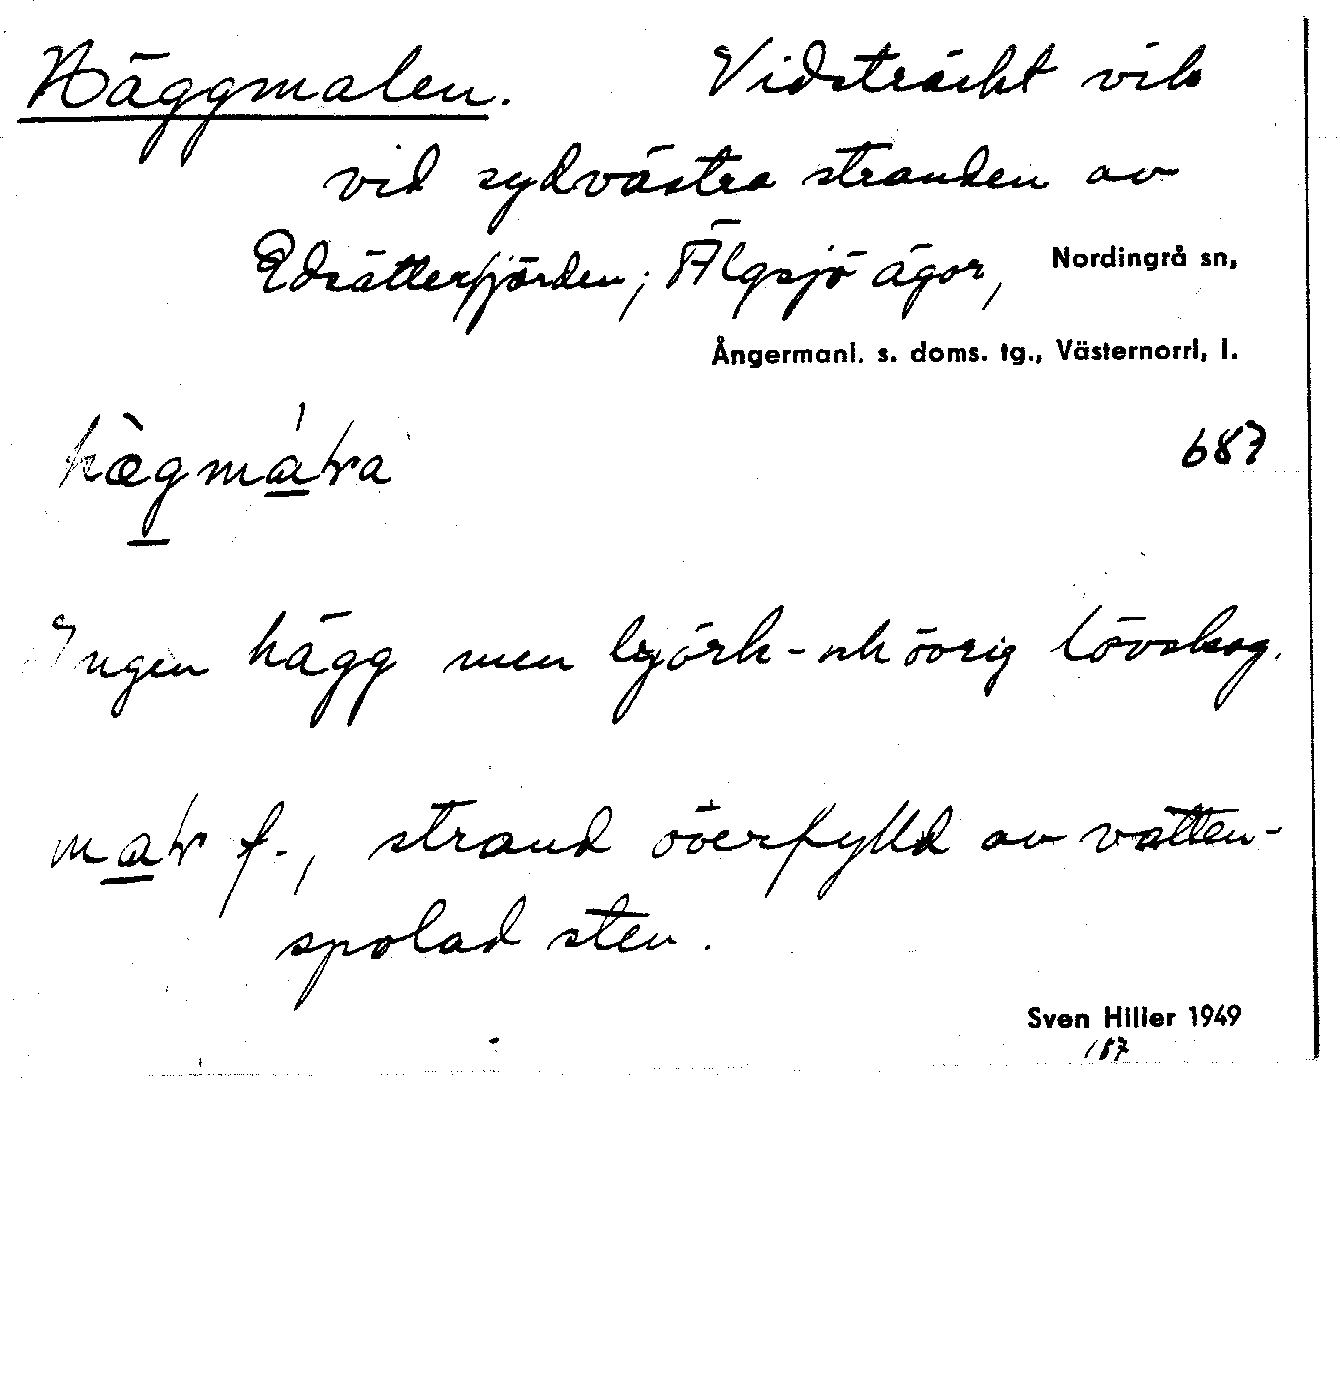 Häggmalen. Vidsträckt vik
vid sydvästra stranden av
Edsätterfjärden; Älgsjö ägor, Nordingrå sn,
Ångermanl. s. doms. tg., Västernorrl, l.
687
Ingen hägg men björk- och övrig lövskog.
f., strand överfylld av vatten-
spolad sten.
Sven Hiller 1949
187